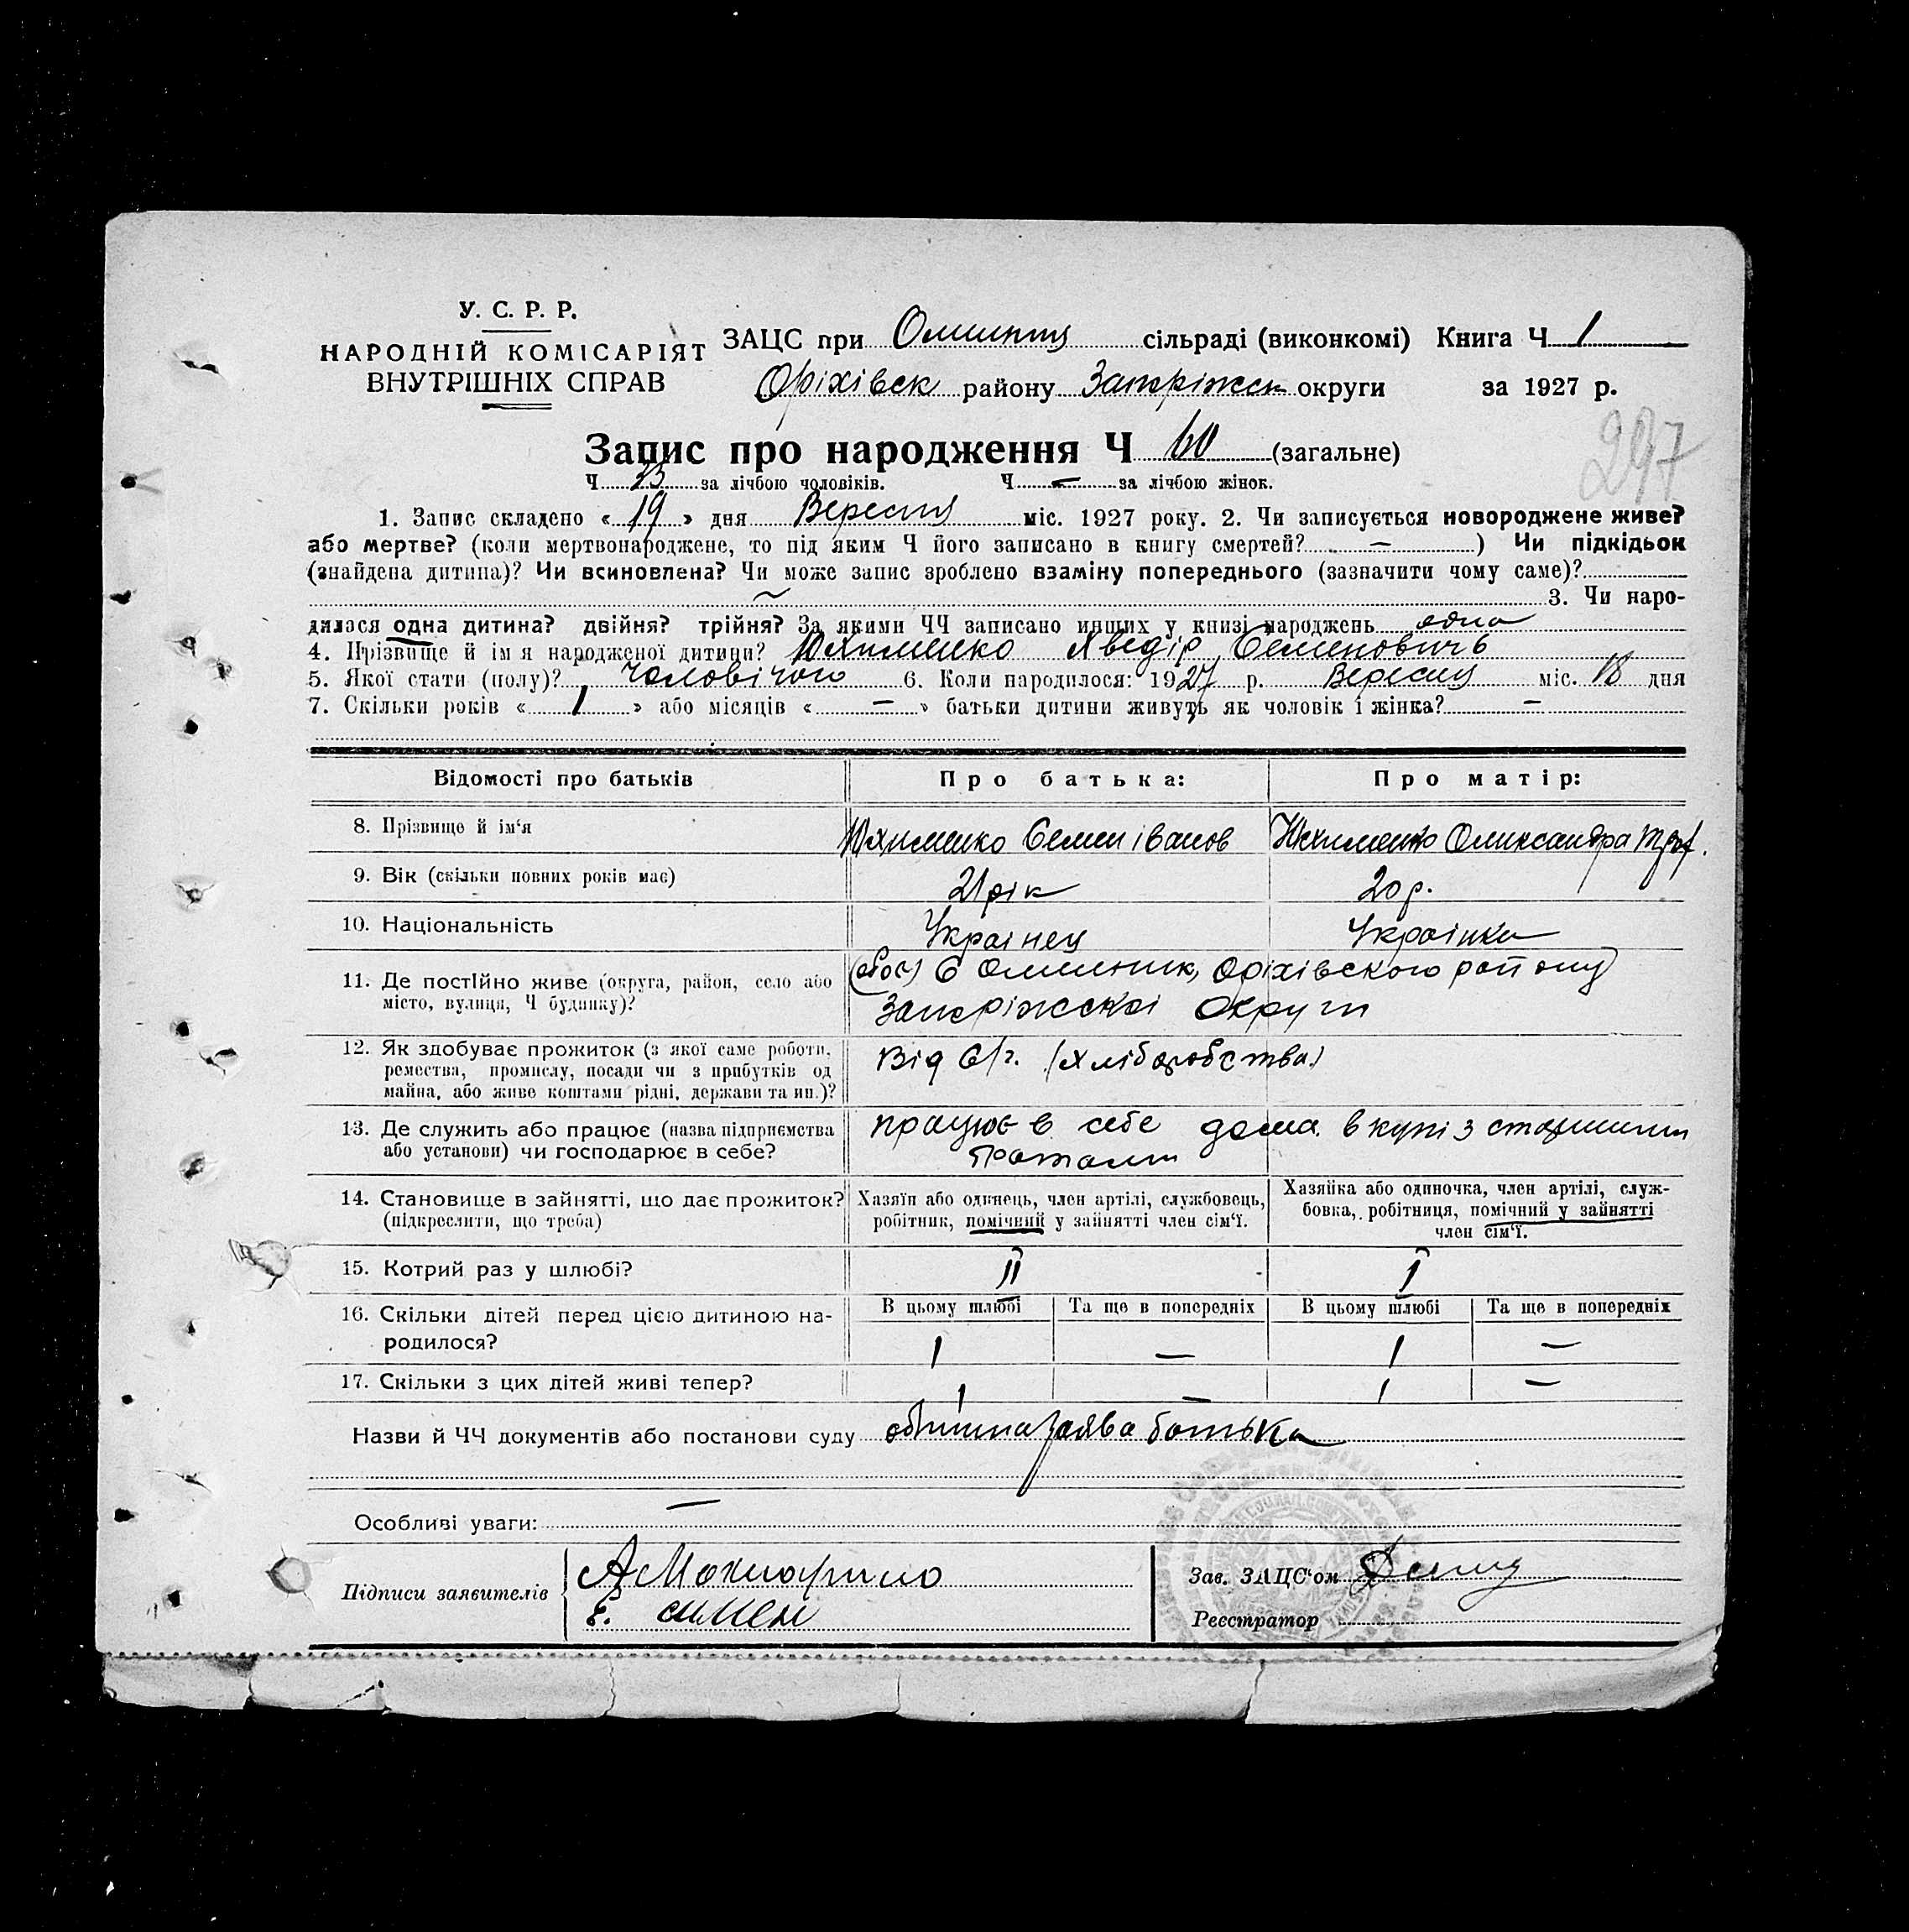 У. С. Р. Р.
НАРОДНІЙ КОМІСАРІЯТ
ВНУТРІШНІХ СПРАВ
ЗАЦС при сільраді (виконкомі) Книга Ч 1
Оріхівск району округи за 1927 р.
297
Запис про народження Ч 60 (загальне)
Ч 33 за лічбою чоловіків. Ч — за лічбою жінок.
1. Запис складено « 19 » дня Вересня міс. 1927 року. 2. Чи записується новороджене живе?
або мертве? (коли мертвонароджене, то під яким Ч його записано в книгу смертей? — ) Чи підкідьок
(знайдена дитина)? Чи всиновлена? Чи може запис зроблено взаміну попереднього (зазначити чому саме)?
3. Чи наро-
дилася одна дитина? двійня? трійня? За якими ЧЧ записано инших у книзі народжень одна
4. Прізвище й ім'я народженої дитини? Юхименко Хведір Семенович
5. Якої стати (полу)? Чоловічого 6. Коли народилося: 1927 р. Вересня міс. 18 дня
7. Скільки років « 1 » або місяців « — » батьки дитини живуть як чоловік і жінка? —
Відомості про батьків Про батька: Про матір:
8. Прізвище й ім'я Юхименко Семен Іванов Юхименко Олександра
9. Вік (скільки повних років має) 21 рік 20 р.
10. Національність Українец Українка
11. Де постійно живе (округа, район, село або місто, вулиця, Ч будинку)? Оріхівского району
округи
12. Як здобуває прожиток (з якої саме роботи, ремества, промислу, посади чи з прибутків од майна, або живе коштами рідні, держави та ин.)? Від С/г. (хліборобства)
13. Де служить або працює (назва підприємства або установи) чи господарює в себе? працює в себе дома вкупі з
14. Становище в зайнятті, що дає прожиток? (підкреслити, що треба) Хазяїн або одинець, член артілі, службовець, робітник, помічний у зайнятті член сім'ї. Хазяйка або одиночка, член артілі, служ-бовка, робітниця, помічний у зайнятті член сім'ї.
15. Котрий раз у шлюбі? II I
16. Скільки дітей перед цією дитиною на-родилося? В цьому шлюбі Та ще в попередніх В цьому шлюбі Та ще в попередніх
1 — 1 —
17. Скільки з цих дітей живі тепер? 1 — 1 —
Назви й ЧЧ документів або постанови суду заява батька
Особливі уваги: —
Підписи заявителів
Зав. ЗАЦС'ом
Реєстратор